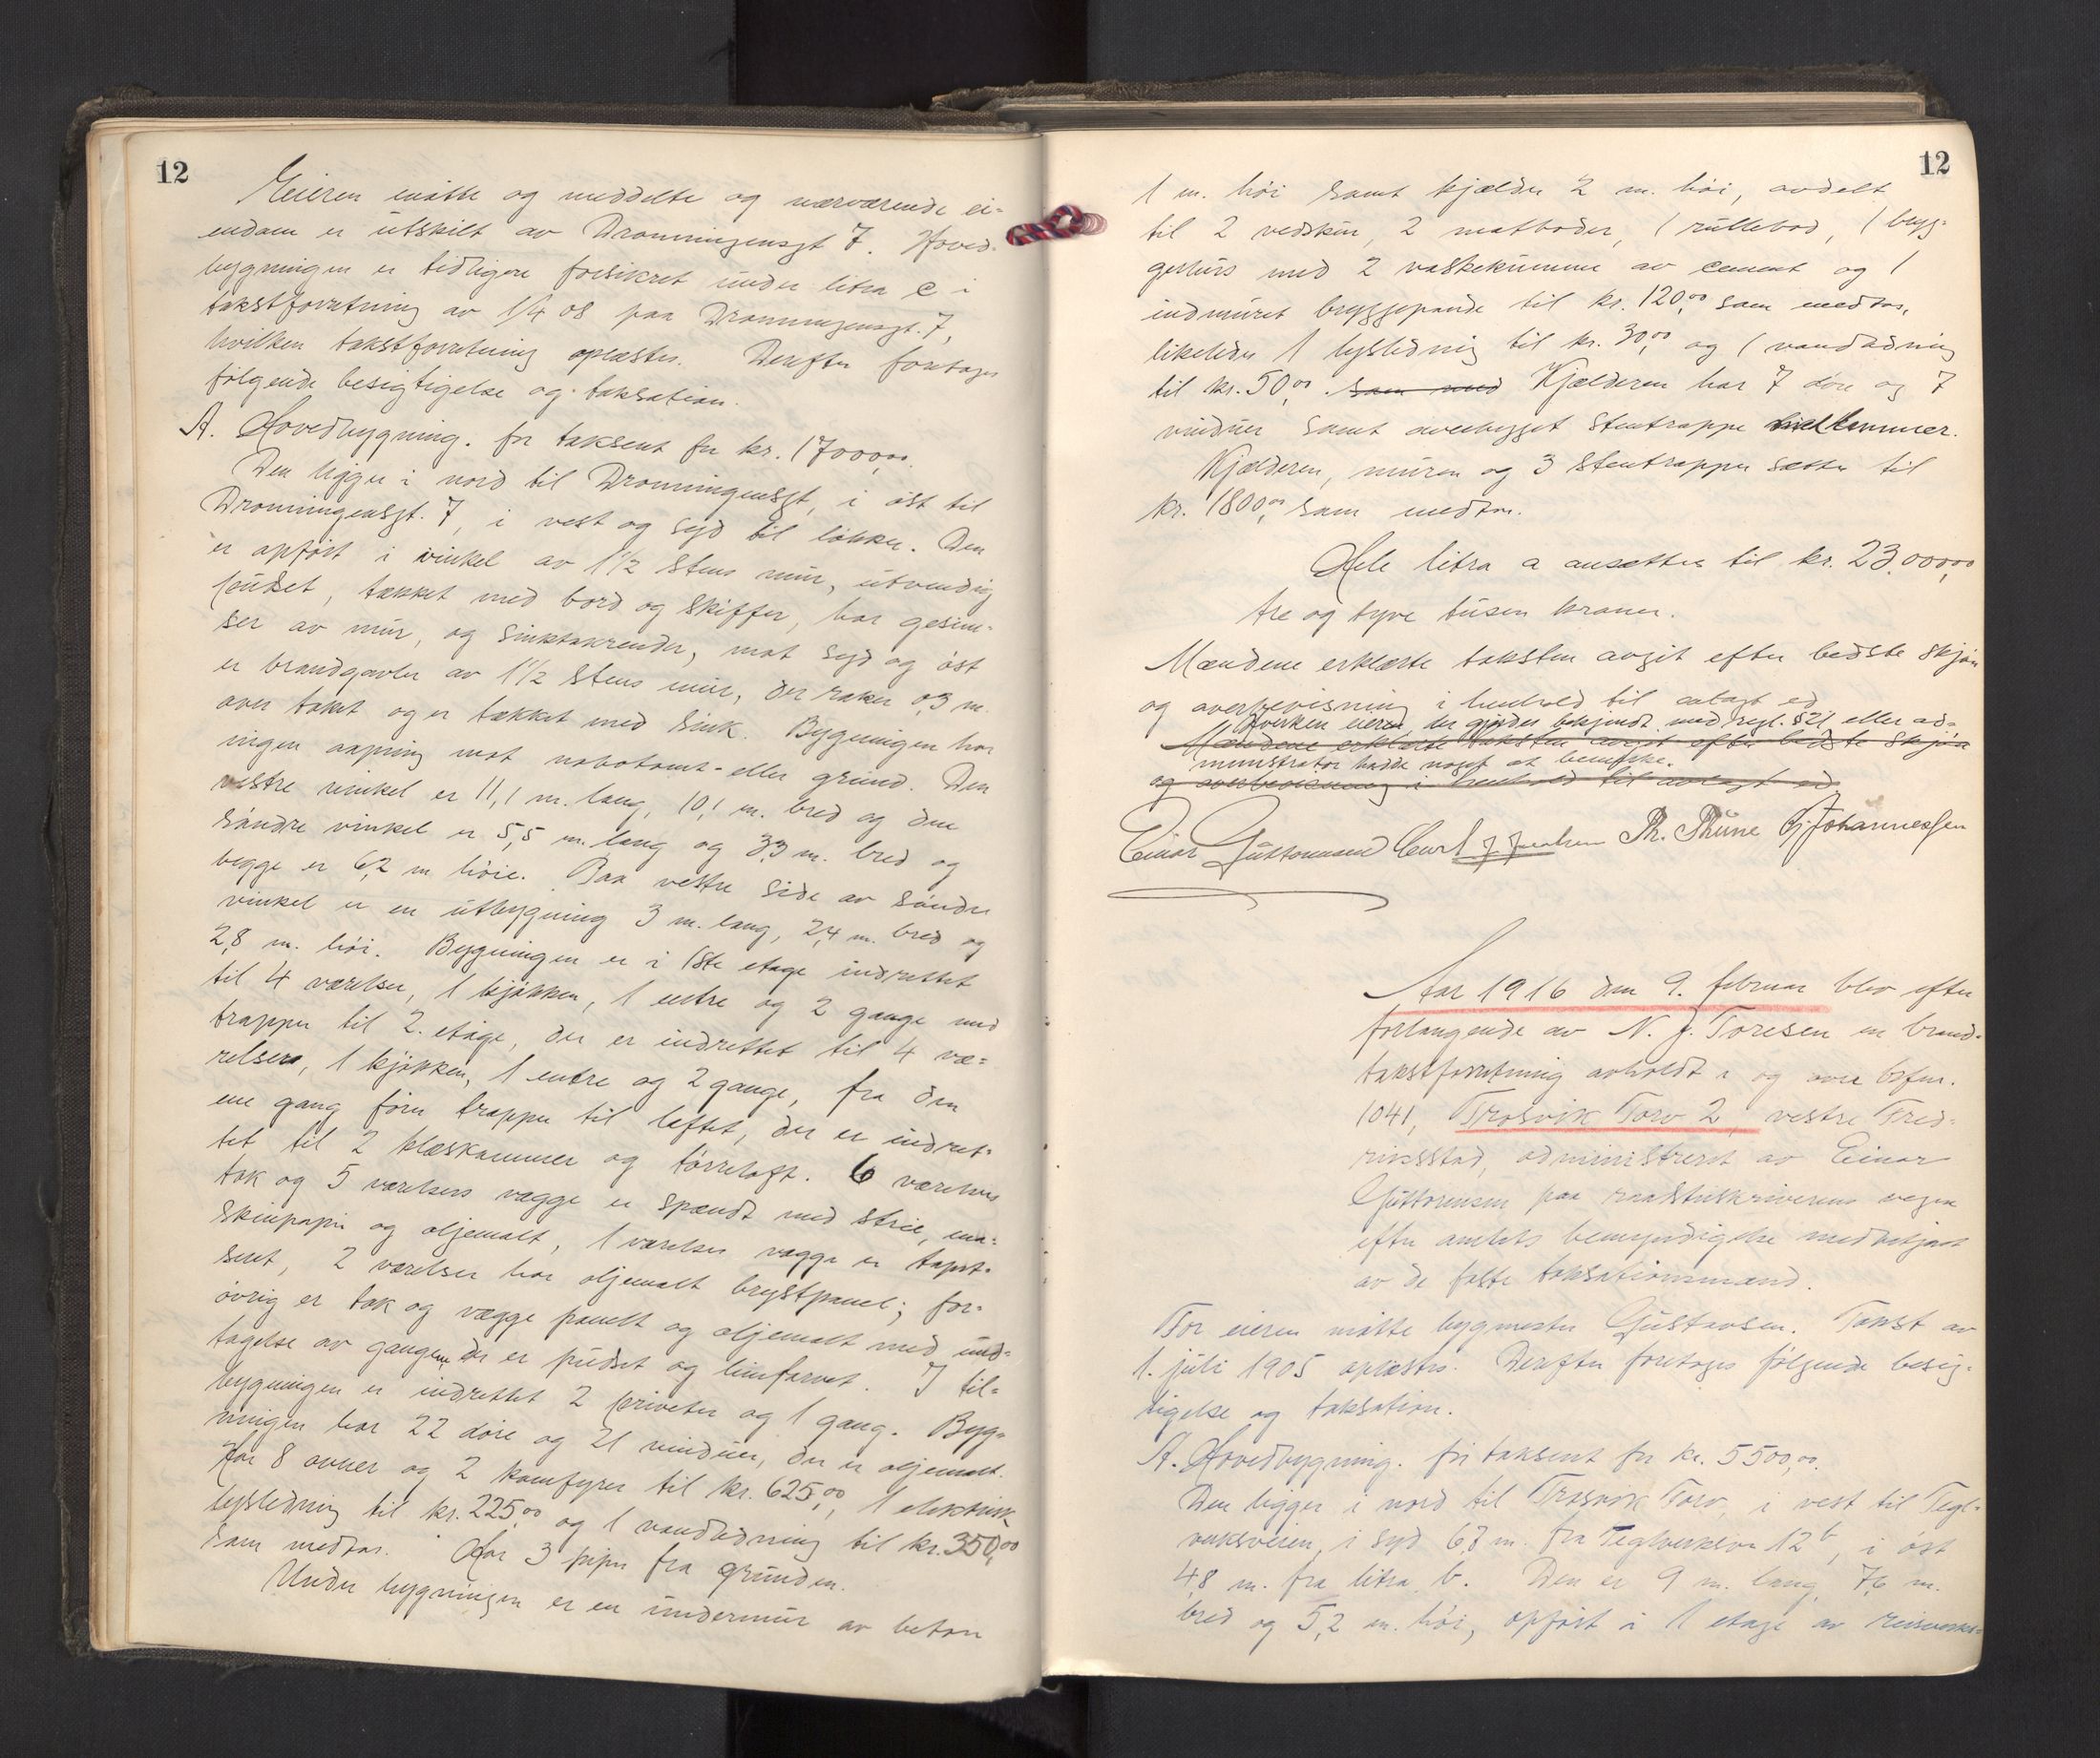 12
Eieren møtte og meddelte og nærværende ei=
endom er utskilt av Dronningensgt 7. Hoved=
bygningen er tidligere forsikret under litra c i
takstforretning av 1/4 08 paa Dronningensgt. 7,
hvilken takstforretning oplæstes. Derefter foretoges
følgende besigtigelse og taksation.
A. Hovedbygning. før taksert for kr. 17000,00.
Den ligger i nord til Dronningensgt, i øst til
Dronningensgt. 7, i vest og syd til løkker. Den
er opført i vinkel av 1 1/2 stens mur, utvendig
pudset, tækket med bord og skiffer, har gesim=
ser av mur, og sinktakrender, mot syd og øst
er brandgavler av 1 1/2 stens mur, der raker 0,3 m.
over taket og er tækket med sink. Bygningen har
ingen aapning mot nabotomt- eller grund. Den
vestre vinkel er 11,1 m. lang, 10,1 m. bred og den
søndre vinkel er 5,5 m. lang og 3,3 m. bred og
begge er 6,2 m. høie. Paa vestre side av søndre
vinkel er en utbygning 3 m. lang, 2,4 m. bred og
2,8 m. høi. Bygningen er i 1ste etage indrettet
til 4 værelser, 1 kjøkken, 1 entre og 2 gange med
trapper til 2. etage, der er indrettet til 4 væ=
relser, 1 kjøkken, 1 entre og 2 gange, fra den
ene gang fører trappe til loftet, der er indret=
tet til 2 klæskammer og tørreloft. 6 værelsers
tak og 5 værelsers vægge er spændt med strie, ma=
skinpapir og oljemalt, 1 værelses vægge er tapet=
seret, 2 værelser har oljemalt brystpanel; for=
øvrig er tak og vægge panelt og oljemalt med und=
tagelse av gangen, der er pudset og limfarvet. I til=
bygningen er indrettet 2 priveter og 1 gang. Byg=
ningen har 22 døre og 21 vinduer, der er oljemalt.
Har 8 ovner og 2 komfyrer til kr. 625,00, 1 elektrisk
lysledning til kr. 225,00 og 1 vandledning til kr. 350,00
som medtas. Har 3 piper fra grunden.
Under bygningen er en undermur av beton
12
1 m. høi samt kjælder 2 m. høi, avdelt
til 2 vedskur, 2 matboder, 1 rullebod, 1 bryg=
gerhus med 2 vaskekummer av cement og 1
indmuret bryggepande til kr. 120,00 som medtas,
likeledes 1 lysledning til kr. 30,00 og 1 vandledning
til kr. 50,00. som med Kjælderen har 7 døre og 7
vinduer samt overbygget stentrappe med lemmer.
Kjælderen, muren og 3 stentrapper sættes til
kr. 1800,00 som medtas.
Hele litra a ansættes til kr. 23.000,00
tre og tyve tusen kroner.
Mændene erklærte taksten avgit efter bedste skjøn
og overbevisning i henhold til avlagt ed
Hverken eieren der gjordes bekjendt med regl. § 21 eller ad=
Mændene erklærte taksten avgit efter bedste skjøn
ministrator hadde noget at bemerke.
og overbevisning i henhold til avlagt ed
Einar Guttormsen Carl J. Th. Thune Johannessen
Aar 1916 den 9. februar blev efter
forlangende av N. J. Toresen en brand=
takstforretning avholdt i og over bsfnr.
1041, Trosvik Torv 2, vestre Fred=
riksstad, administreret av Einar
Guttormsen paa raadstuskriverens vegne
efter amtets bemyndigelse med betjent
av de faste taksationsmænd.
For eieren møtte bygmester Gustavsen. Takst av
1. juli 1905 oplæstes. Derefter foretoges følgende besig=
tigelse og taksation.
A. Hovedbygning. før taksert for kr. 5500,00.
Den ligger i nord til Trosvik Torv, i vest til Tegl=
verksveien, i syd 6,8 m. fra Teglverksv. 12b, i øst
4,8 m. fra litra b. Den er 9 m. lang, 7,6 m.
bred og 5,2 m. høi, opført i 1 etage av reisverks=